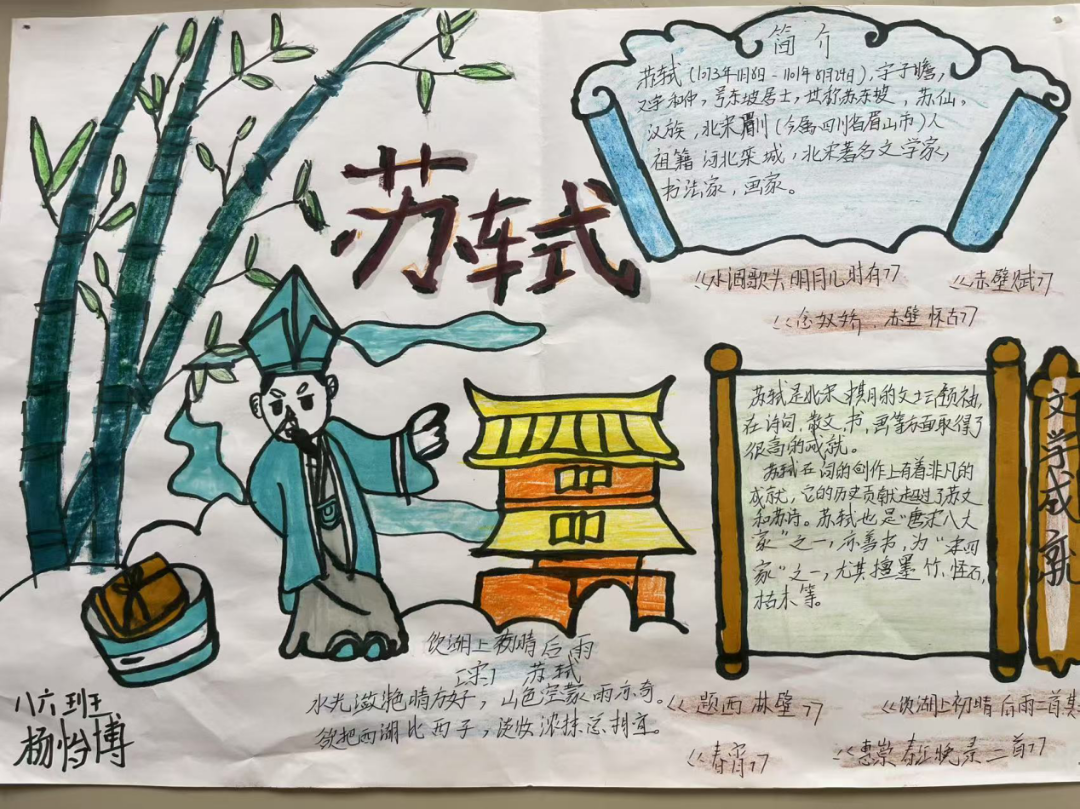 简介
苏轼(1073年1月8日-1101年8月24日),字子瞻,
又字和仲,号东坡居士,世称苏东坡,苏仙。
汉族,北宋眉州(今属四川省眉山市)人
祖籍河北栾城,北宋著名文学家,
书法家,画家。
苏轼
《水调歌头 明月几时有》
《赤壁赋》
《念奴娇.赤壁怀古》
苏轼是北宋期的文士领袖,
在诗词、散文、书、画等方面取得了
很高的成就。
苏轼在词的创作上有着非凡的
成就,它的历史贡献超过了苏文
和苏诗。苏轼也是“唐宋八大
家”之一,亦善书,为“宋四
家”之一,尤其擅墨竹、怪石,
枯木等。
文学成就
饮湖上初晴后雨
[宋] 苏轼
水光潋艳晴方好,山色空蒙雨亦奇。
欲把西湖比西子,淡妆浓抹总相宜。
《题西林壁》
《饮湖上初晴后雨二首其
《春宵》
《惠崇春江晚景二首》
八六班
杨怡博